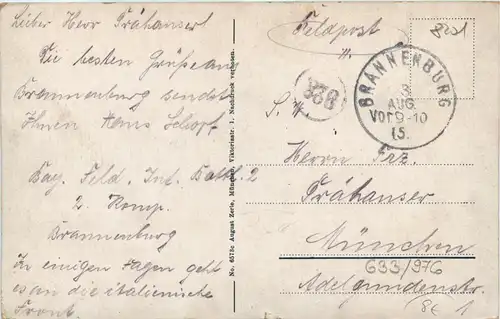 Lieber Herr Frühauser!
Die besten Grüße aus
Brannenburg sendet
Ihnen Hans Schorf.
Bay. Feld. Int. Batt. 2
2 Komp.
Brannenburg
In einigen Tagen geht
es an die italienische
Front.
No. 6573c August Zerle, München, Viktoriastr. 1. Nachdruck verboten.
Feldpost
BRANNENBURG
3
AUG.
Vor 9-10
15.
S. H
Herrn Frz.
Frühauser
München
693/976
Adelgundenstr.
8€ 1